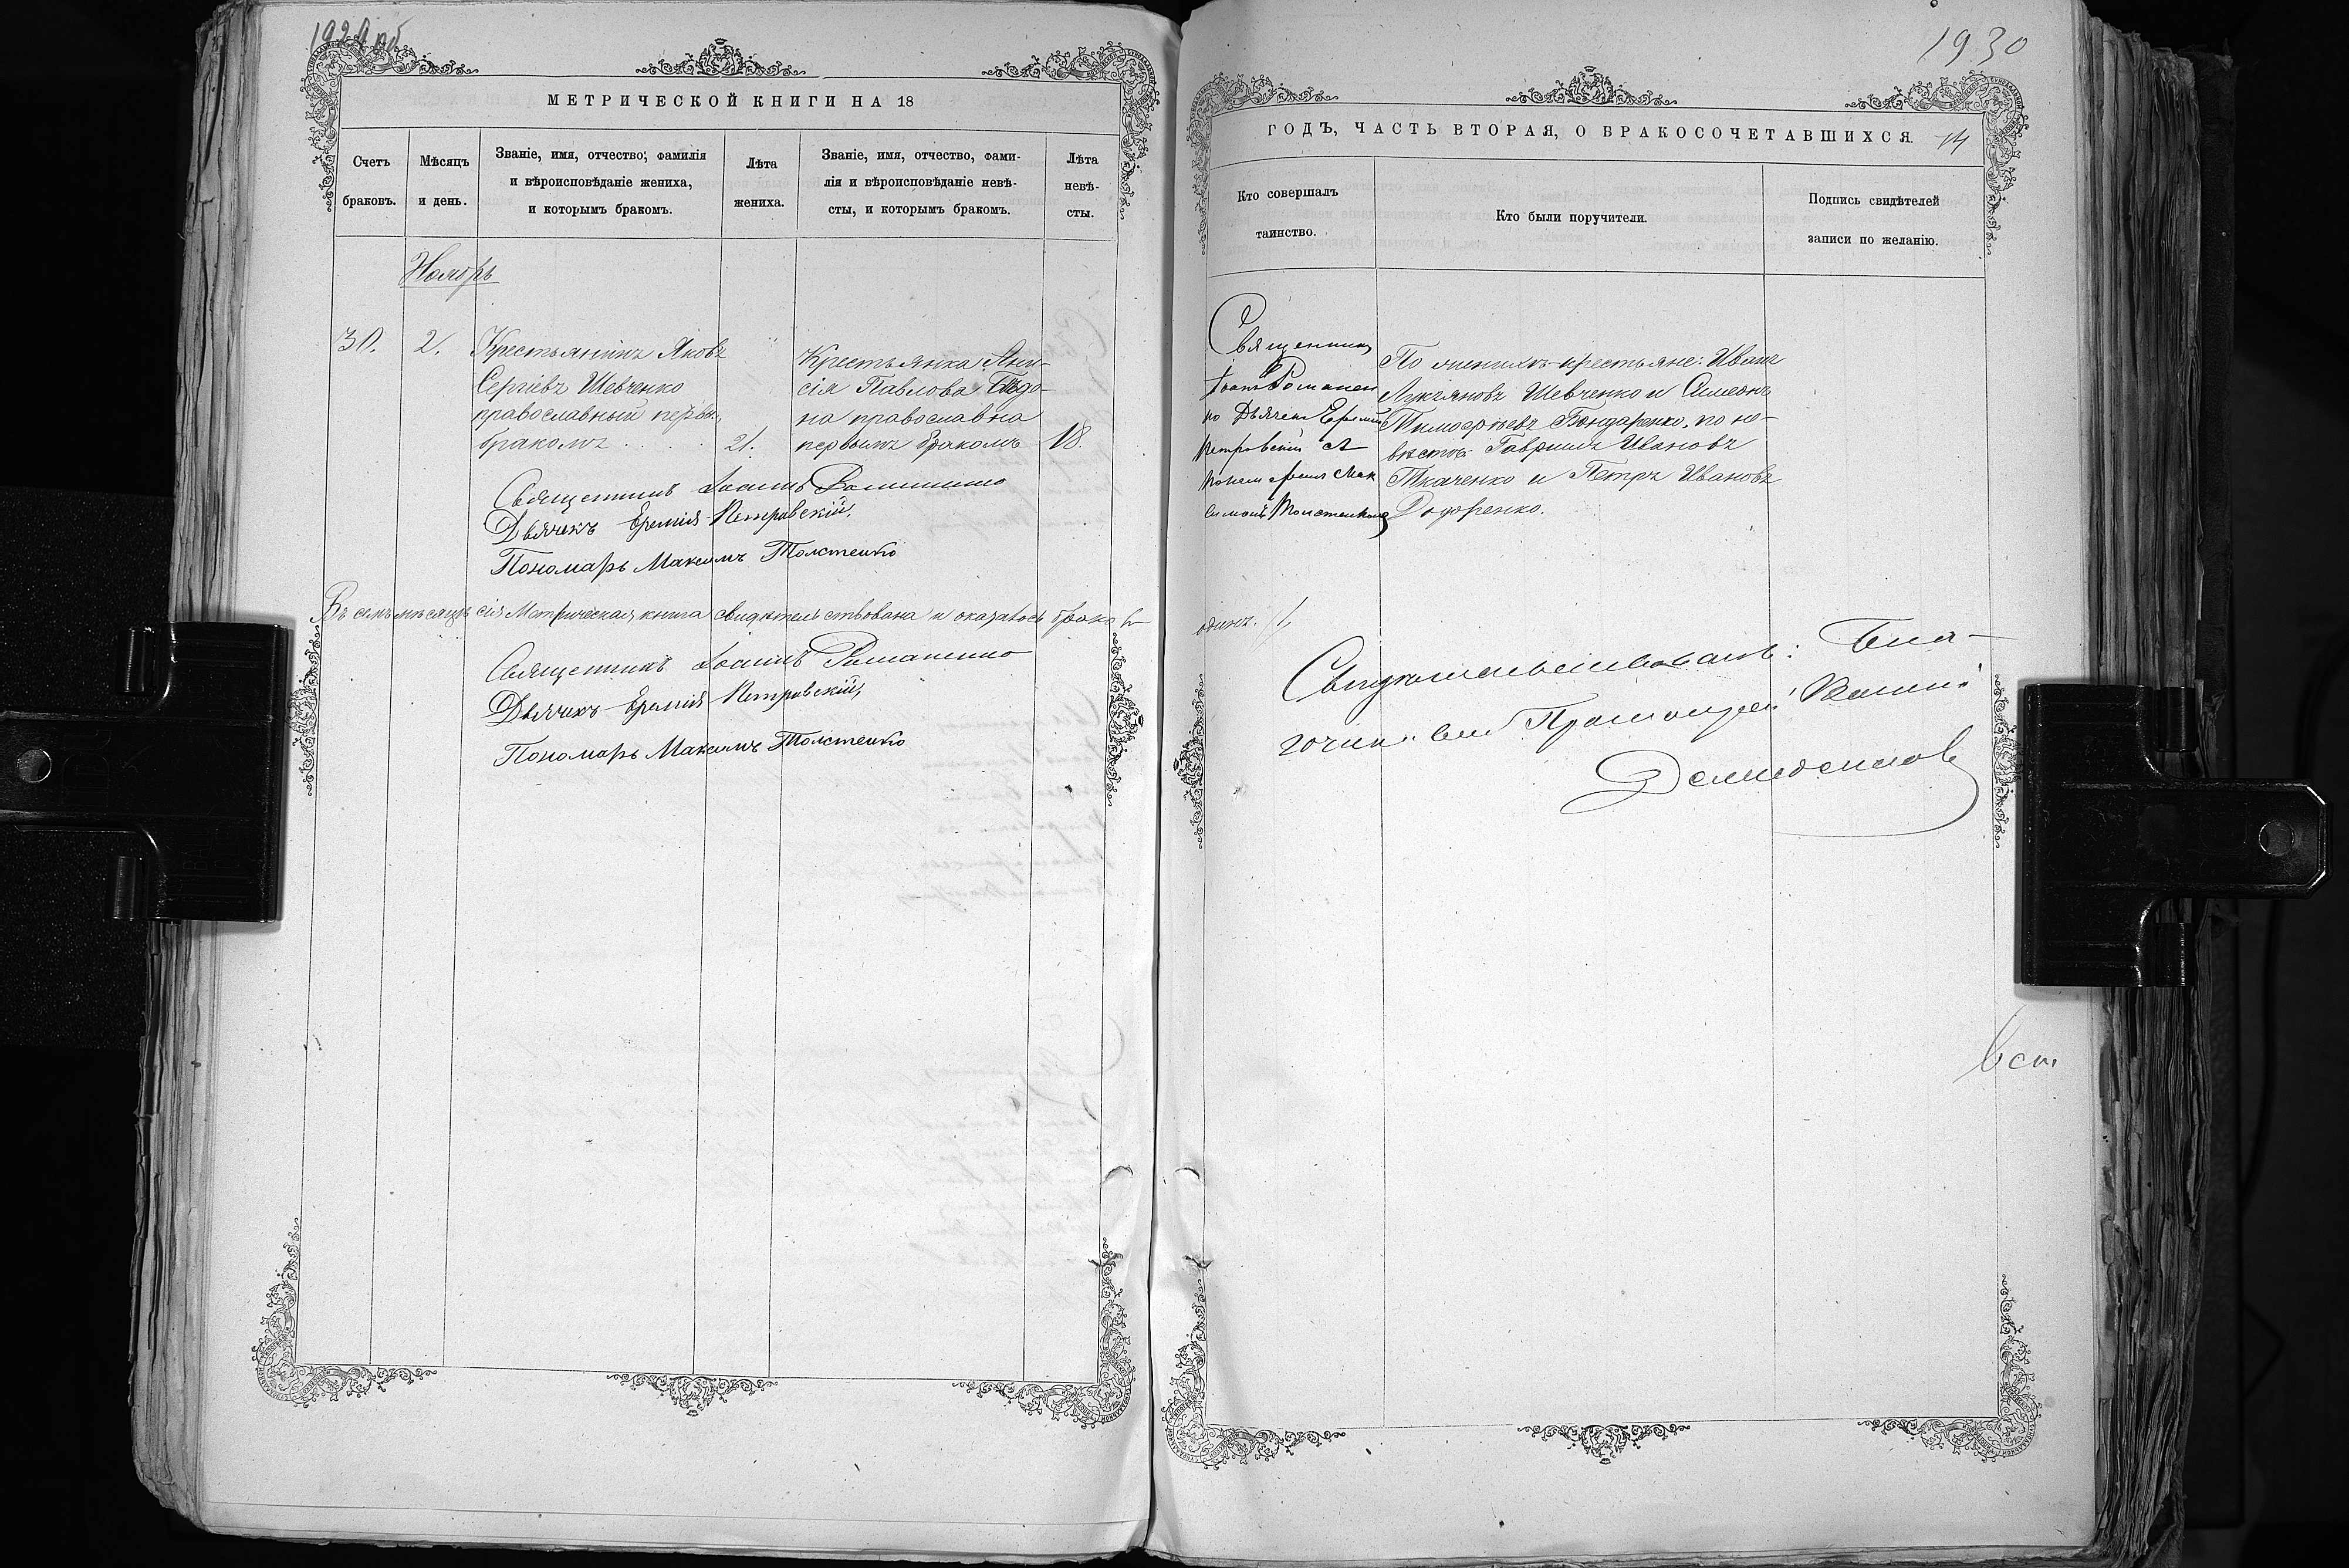 1929 об
МЕТРИЧЕСКОЙ КНИГИ НА 18
Счетъ браковъ.
Мѣсяцъ и день.
Званіе, имя, отчество, фамилія
и вѣроисповѣданіе жениха,
и которымъ бракомъ.
Лѣта жениха.
Званіе, имя, отчество, фами-
лія и вѣроисповѣданіе невѣ-
сты, и которымъ бракомъ.
Лѣта
невѣ-
сты.
Ноябрь
30.
2.
Крестьянинъ Яковъ
Сергіевъ Шевченко
православный первы
бракомъ
21.
Крестьянка Ани-
сія Павлова
на православна
первымъ бракомъ
18.
Священникъ Іоаннъ Романенко
Дьячекъ Еремія Петровскій
Пономарь Максимъ Толстенко
Въ семъ мѣсяцѣ сія Метрическая книга свидѣтельствована и оказалось браковъ
Священникъ Іоаннъ Романенко
Дьячекъ Еремія Петровскій
Пономарь Максимъ Толстенко
1930
ГОДЪ, ЧАСТЬ ВТОРАЯ, О БРАКОСОЧЕТАВШИХСЯ.
14
Кто совершалъ
таинство.
Кто были поручители.
Подпись свидѣтелей
записи по желанію.
Священникъ
Іоаннъ Романен
ко Дьячекъ Еремій
Петровскій и
Пономарь Мак
симъ Толстенко
По женихѣ крестьяне: Иванъ
Лукіяновъ Шевченко и Симеонъ
Тимофѣевъ Бондаренко, по не-
вѣстѣ Гавріилъ Ивановъ
Ткаченко и Петръ Ивановъ
одинъ. 1,
Свидѣтельствовалъ: Бла-
гочинный Протоіерей